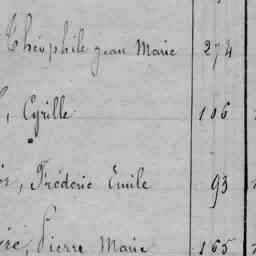 Théophile Jean Marie 274
Cyrille 106
Fréderic Emile 93
Pierre Marie 165